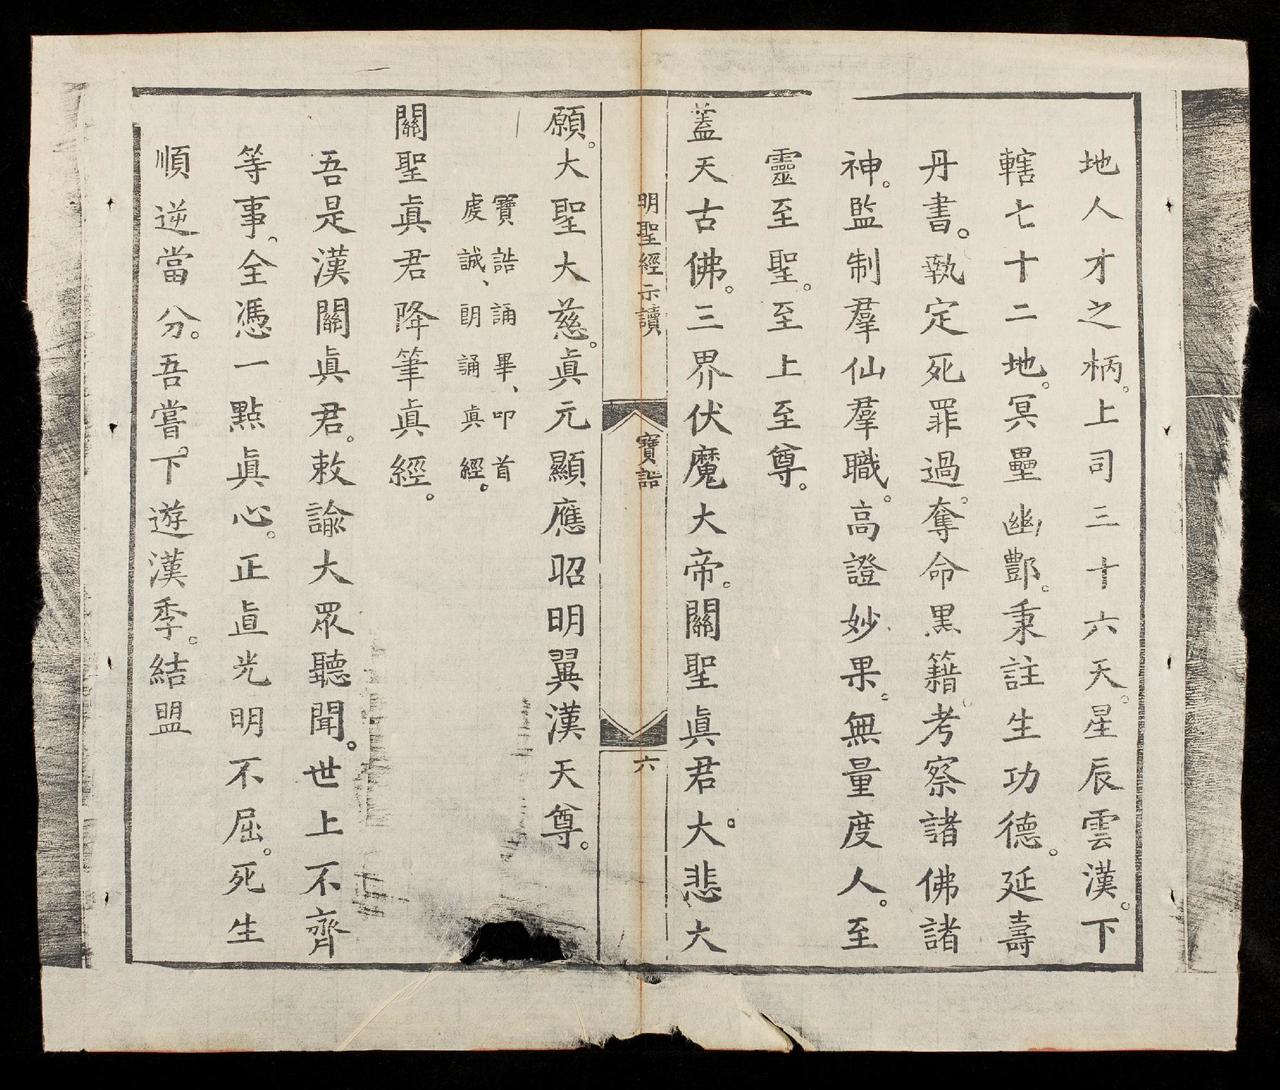 地人才之柄。上司三十六天。星辰雲漢。下
轄七十二地。冥壘幽酆。秉註生功德。延壽
丹書。執定死罪過。奪命黑籍。考察諸佛諸
神。監制羣仙羣職。高證妙果。無量度人。至
靈至聖。至上至尊。
蓋天古佛。三界伏魔大帝。關聖眞君。大悲大
明聖經示讀
寶誥
六
願。大聖大慈。眞元顯應昭明翼漢天尊。
寶誥誦畢、叩首
虔誠、朗誦眞經。
關聖眞君降筆眞經。
吾是漢關眞君。敕諭大眾聽聞。世上不齊
等事、全憑一點眞心。正直光明不屈。死生
順逆當分。吾嘗下遊漢季。結盟